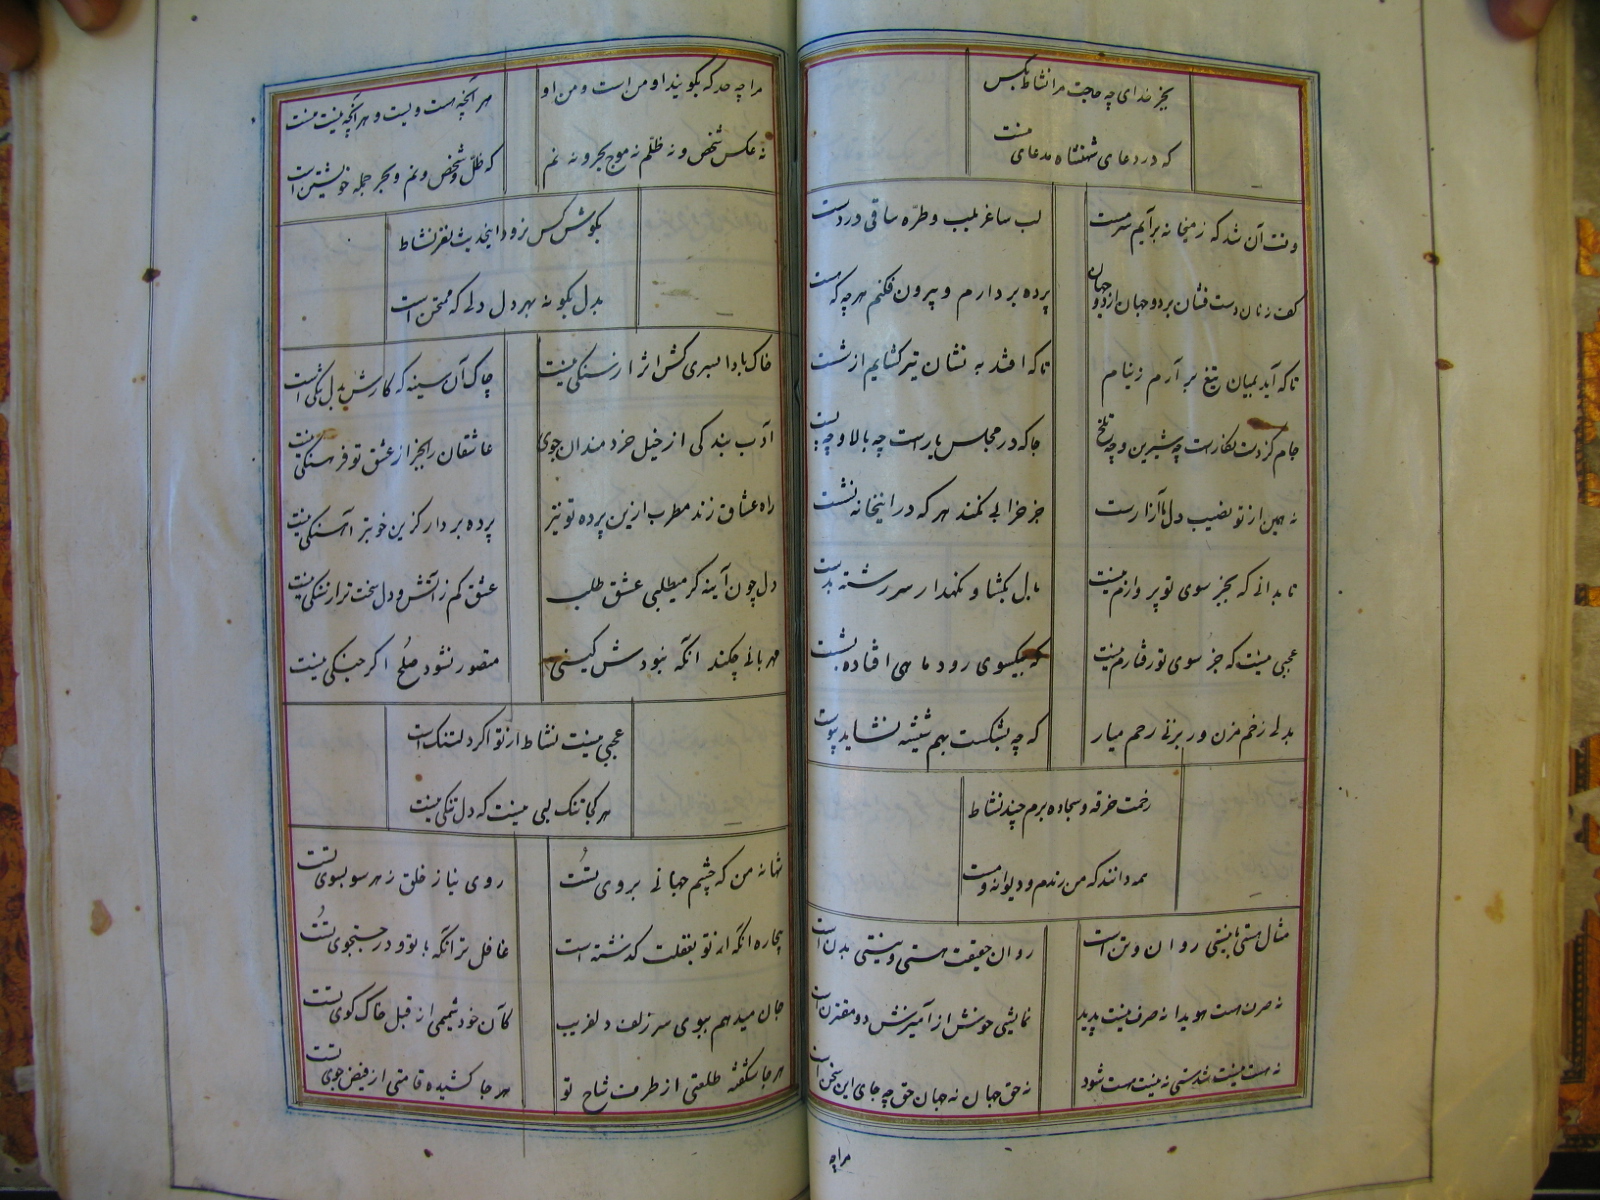 بجز خدای چه حاجت مرا نشاط بکس
که در دعای شهنشاه مدعای منست
وقت آن شد که ز میخانه برآیم سرمست
لب ساغر بلب و طره ساقی در دست
کف زنان دست فشان بر دو جهان از دو جهان
پرده بردارم و بیرون فکنم هرچه که هست
تا که آید بمیان تیغ برآرم ز نیام
تا که افتد به نشان تیر گشایم از شست
جام کز دست نگارست چه شیرین و چه تلخ
جا که در مجلس یارست چه بالا و چه پست
نه همین از تو نصیب دل ما آزارست
جز خرابی نکند هر که در اینخانه نشست
تا بدانی که بجز سوی تو پروازم نیست
بال بگشا و نگهدار سر رشته بدست
عجبی نیست که جز سوی تو رفتارم نیست
که بیکسوی رود ماهی افتاده بشست
بدلی زخم مزن ور بزنی رحم میار
که چه بشکست بهم شیشه نشاید پیوست
رخت خرقه و سجاده برم چند نشاط
همه دانند که من رندم و دیوانه و مست
مثال هستی با نیستی روان و تن است
روان حقیقت هستی و نیستی بدن است
نه صرف هست هویدا نه صرف نیست پدید
نمایشی خوش از آمیزش دو مقترن است
نه هست نیست شد ستی نه نیست هست شود
نه حق جهان نه جهان حق چه جای این سخن است
مرا چه
مرا چه حد که بگویند او من است و من او
هر آنچه هست ویست و هر آنچه نیست منست
نه عکس شخص و نه ظلم نه موج بحر و نه نم
که ظل و شخص و نم و بحر جمله خویشتن است
بگوش کس نرود اینحدیث نغز نشاط
بدل بگو نه بهر دل دلی که ممتحن است
خاک بادا بسری کش اثر از سنگی نیست
چاک آن سینه که کارش بدل تنگی است
ادب بندگی از خیل خردمندان جوی
عاشقان را بجز از عشق تو فرهنگی نیست
راه عشاق زند مطرب ازین پرده تو نیز
پرده بردار کزین خوبتر آهنگی نیست
دل چون آینه گر میطلبی عشق طلب
عشق کم ز آتش و دل سخت تر از سنگی نیست
مهربانی چکند آنکه نبودش کینی
متصور نشود صلح اگر جنگی نیست
عجبی نیست نشاط ار تو اگر دلتنگ است
هر کجا تنگ لبی نیست که دل تنگی نیست
تنها نه من که چشم جهانی بروی تست
روی نیاز خلق ز هر سو بسوی تست
بیچاره آنکه از تو بغفلت گذشته است
غافل تر آنکه با تو و در جستجوی تست
جان میدهم ببوی سر زلف دلفریب
کآن خود شمیمی از قبل خاک کوی تست
هر جا شکفته طلعتی از طرف شاخ تو
هر جا کشیده قامتی از فیض جوی تست